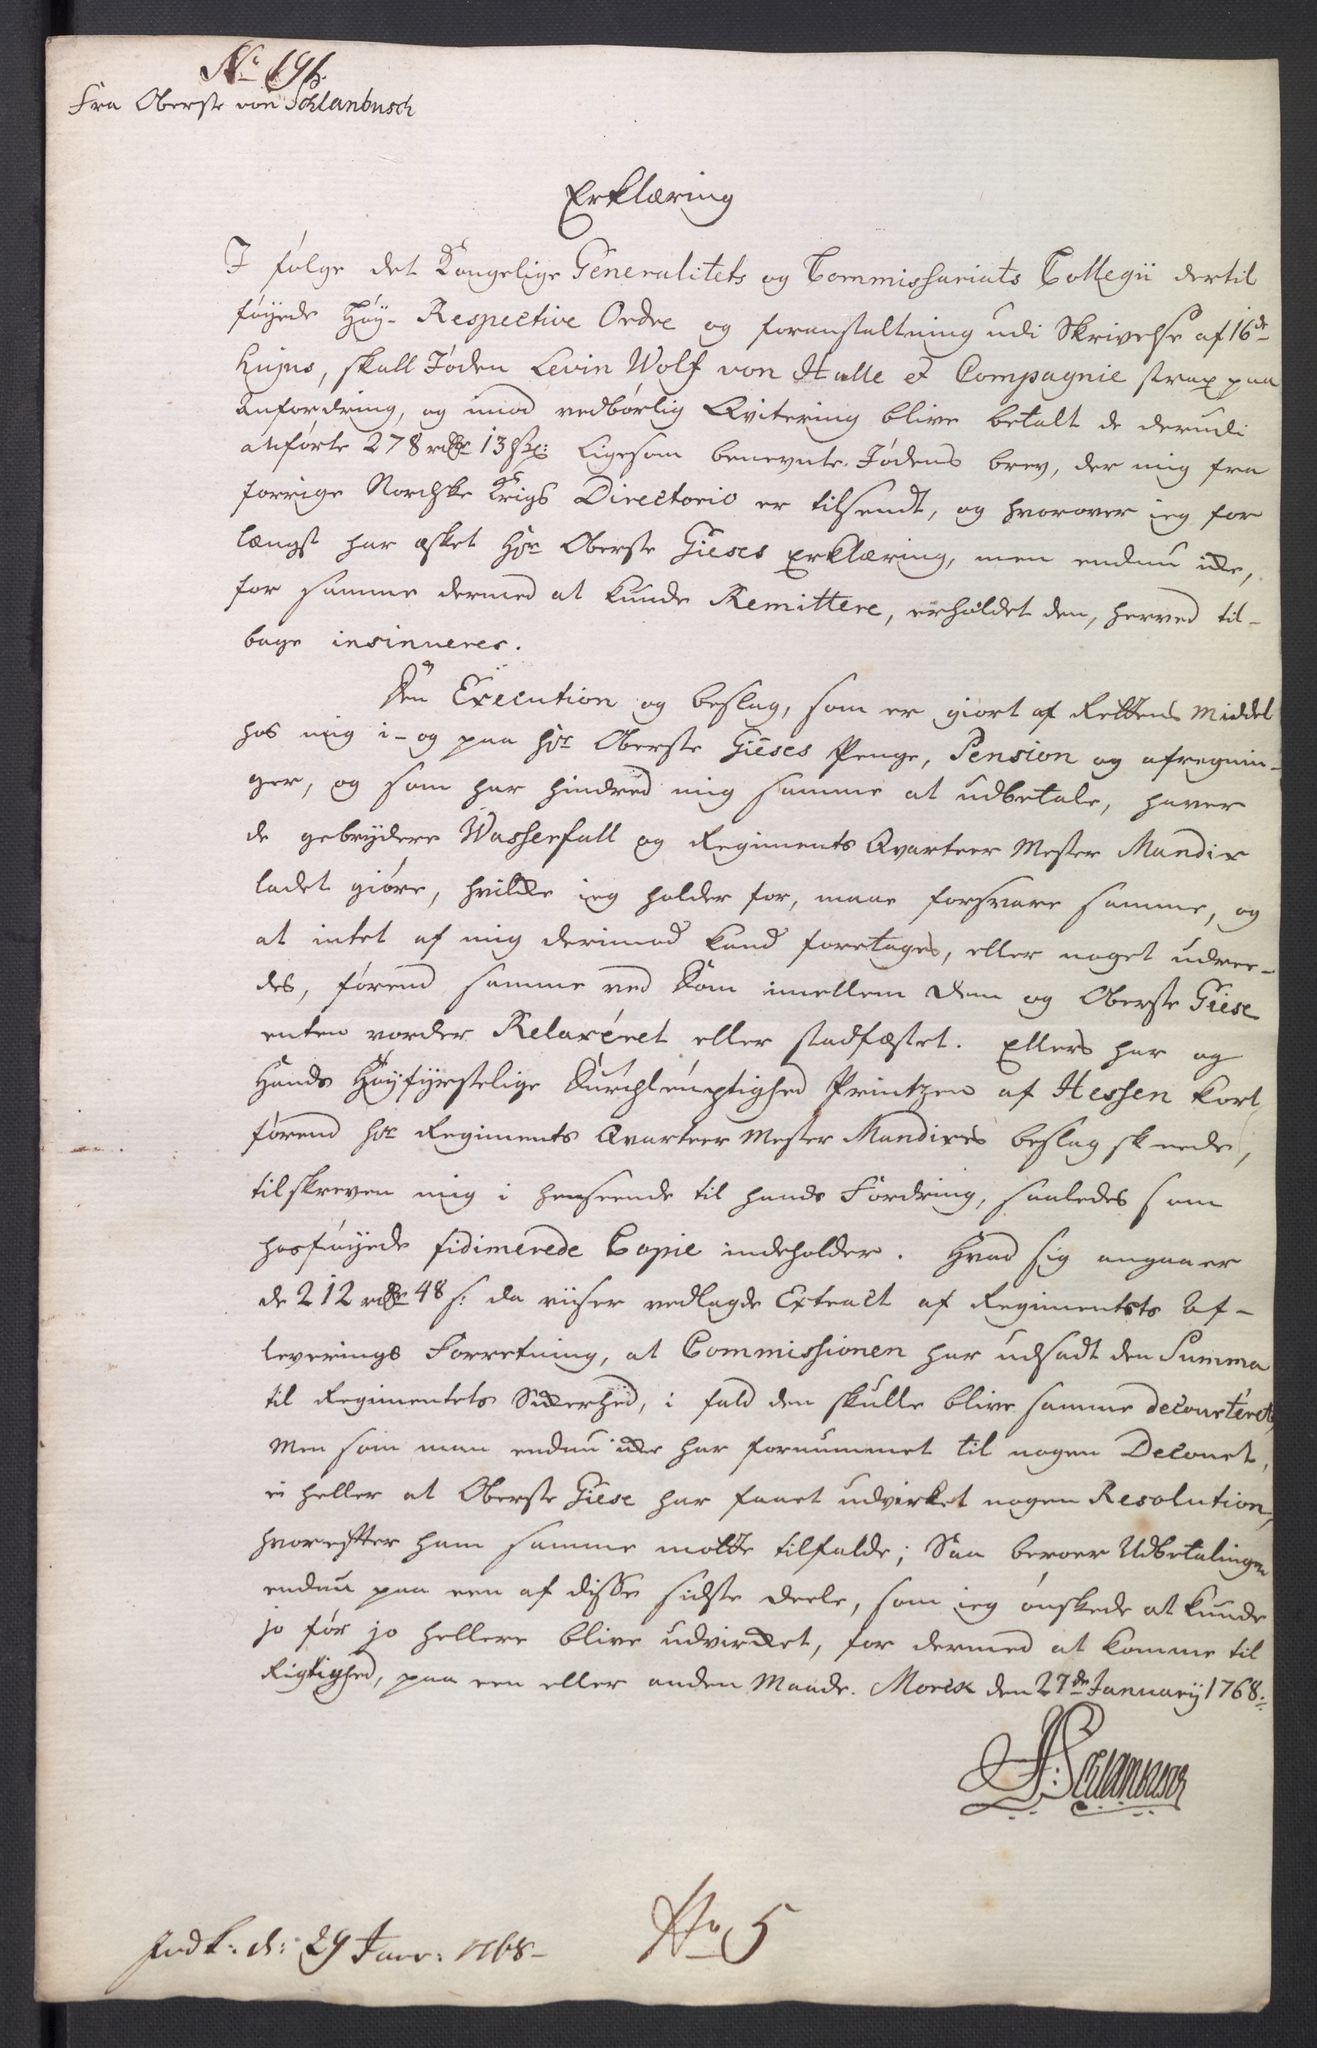 No 191.
Fra Oberste von Schlanbusch
Erklæring
I følge det Kongelige Generalitets og Commissariats Collegii dertil
føyede Høy- Respective Ordre og foranstaltning udi Skrivelse af 16de
hujus, skall Jøden Levin Wolf von Halle et Compagnie strax paa
Anfordring, og imod vedbørlig Qvitering blive betalt de derudi
anførte 278 rdr 13 s: Ligesom benevnte Jødens brev, der mig fra
forrige Nordske Krigs Directorio er tilsendt, og hvorover ieg for
længst har æsket Hr Oberste Gieses Erklæring, men endnu ikke,
for samme dermed at kunde Remittere, erholdet den, herved til-
bage insinueres.
Den Execution og beslag, som er giort af Rettens Middel
hos mig i- og paa hr Oberste Gieses Penge, Pension og afregnin-
ger, og som har hindred mig samme at udbetale, haver
de gebrydere Wasserfall og Regiments Qvarteer Mester Mandix
ladet giøre, hvilke ieg holder for, maae forsvare samme, og
at intet af mig derimod kand foretages, eller noget udree-
des, førend samme ved Dom imellem dem og Oberste Giese
enten vorder Relaxéret eller stadfæstet. Ellers har og
Hands Høyfyrstelige Durchleuchtighed Printzen af Hessen kort
førend hr Regiments Qvarteer Mester Mandixes beslag skeede,
tilskreven mig i henseende til hands Fordring, saaledes som
hosføyede fidimerede Copie indeholder. Hvad sig angaaer
de 212 rdr 48 s: da viiser vedlagde Extract af Regimentets Af-
leverings Forretning, at Commissionen har udsadt den Summa
til Regimentets Sikkerhed, i fald den skulle blive samme decourteret,
Men som man endnu ikke har fornummet til nogen Decourt,
ei heller at Oberste Giese har faaet udvirket nogen Resolution,
hvorefter ham samme motte tilfalde; Saa beroer Udbetalingen
endnu paa een af disse sidste deele, som ieg ønskede at kunde
jo før jo hellere blive udvirket, for dermed at komme til
Rigtighed, paa een eller anden Maade. Moess den 27de January 1768.
Schlanbusch
Indk: d: 29 Janr: 1768-
No 5